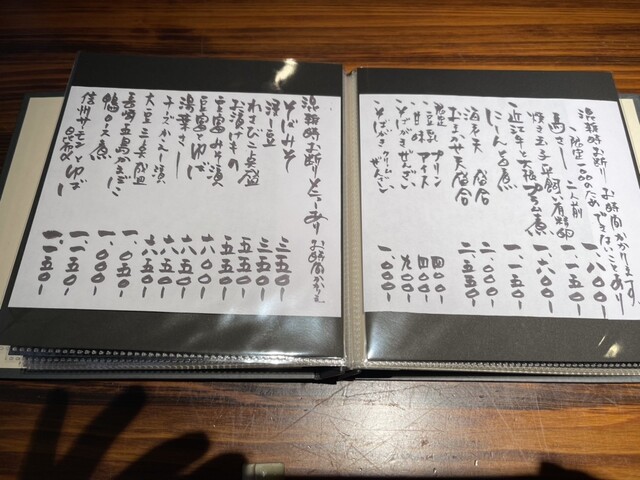 混雑時お断り お時間かかります
限定一品のため できないことあり
馬さし 二人前 一、八〇〇-
焼き玉子 平飼い有精卵 一、一五〇-
近江牛と大根 煮 一、六〇〇-
にしん旨煮 一、一五〇-
海老天 盛合 二、〇〇〇-
おまかせ天 盛合 二、五五〇-
限定 豆乳 プリン 四〇〇-
甘味 アイス 四〇〇-
そばがきぜんざい 九〇〇-
そばがき クリームぜんざい 一、〇〇〇-
混雑時お断りとこあり お時間かかります
そばみそ 三五〇-
浸し豆 三五〇-
わさび三点盛 五五〇-
お漬けもの 五五〇-
豆富みそ漬 六〇〇-
豆富とゆば 八〇〇-
湯葉さし 八五〇-
チーズかえし漬 六五〇-
大豆三点盛 七五〇-
長崎五島かまぼこ 一、〇五〇-
鴨ロース煮 一、〇〇〇-
信州サーモンとゆば 一、一五〇-
昆布〆 一、一五〇-